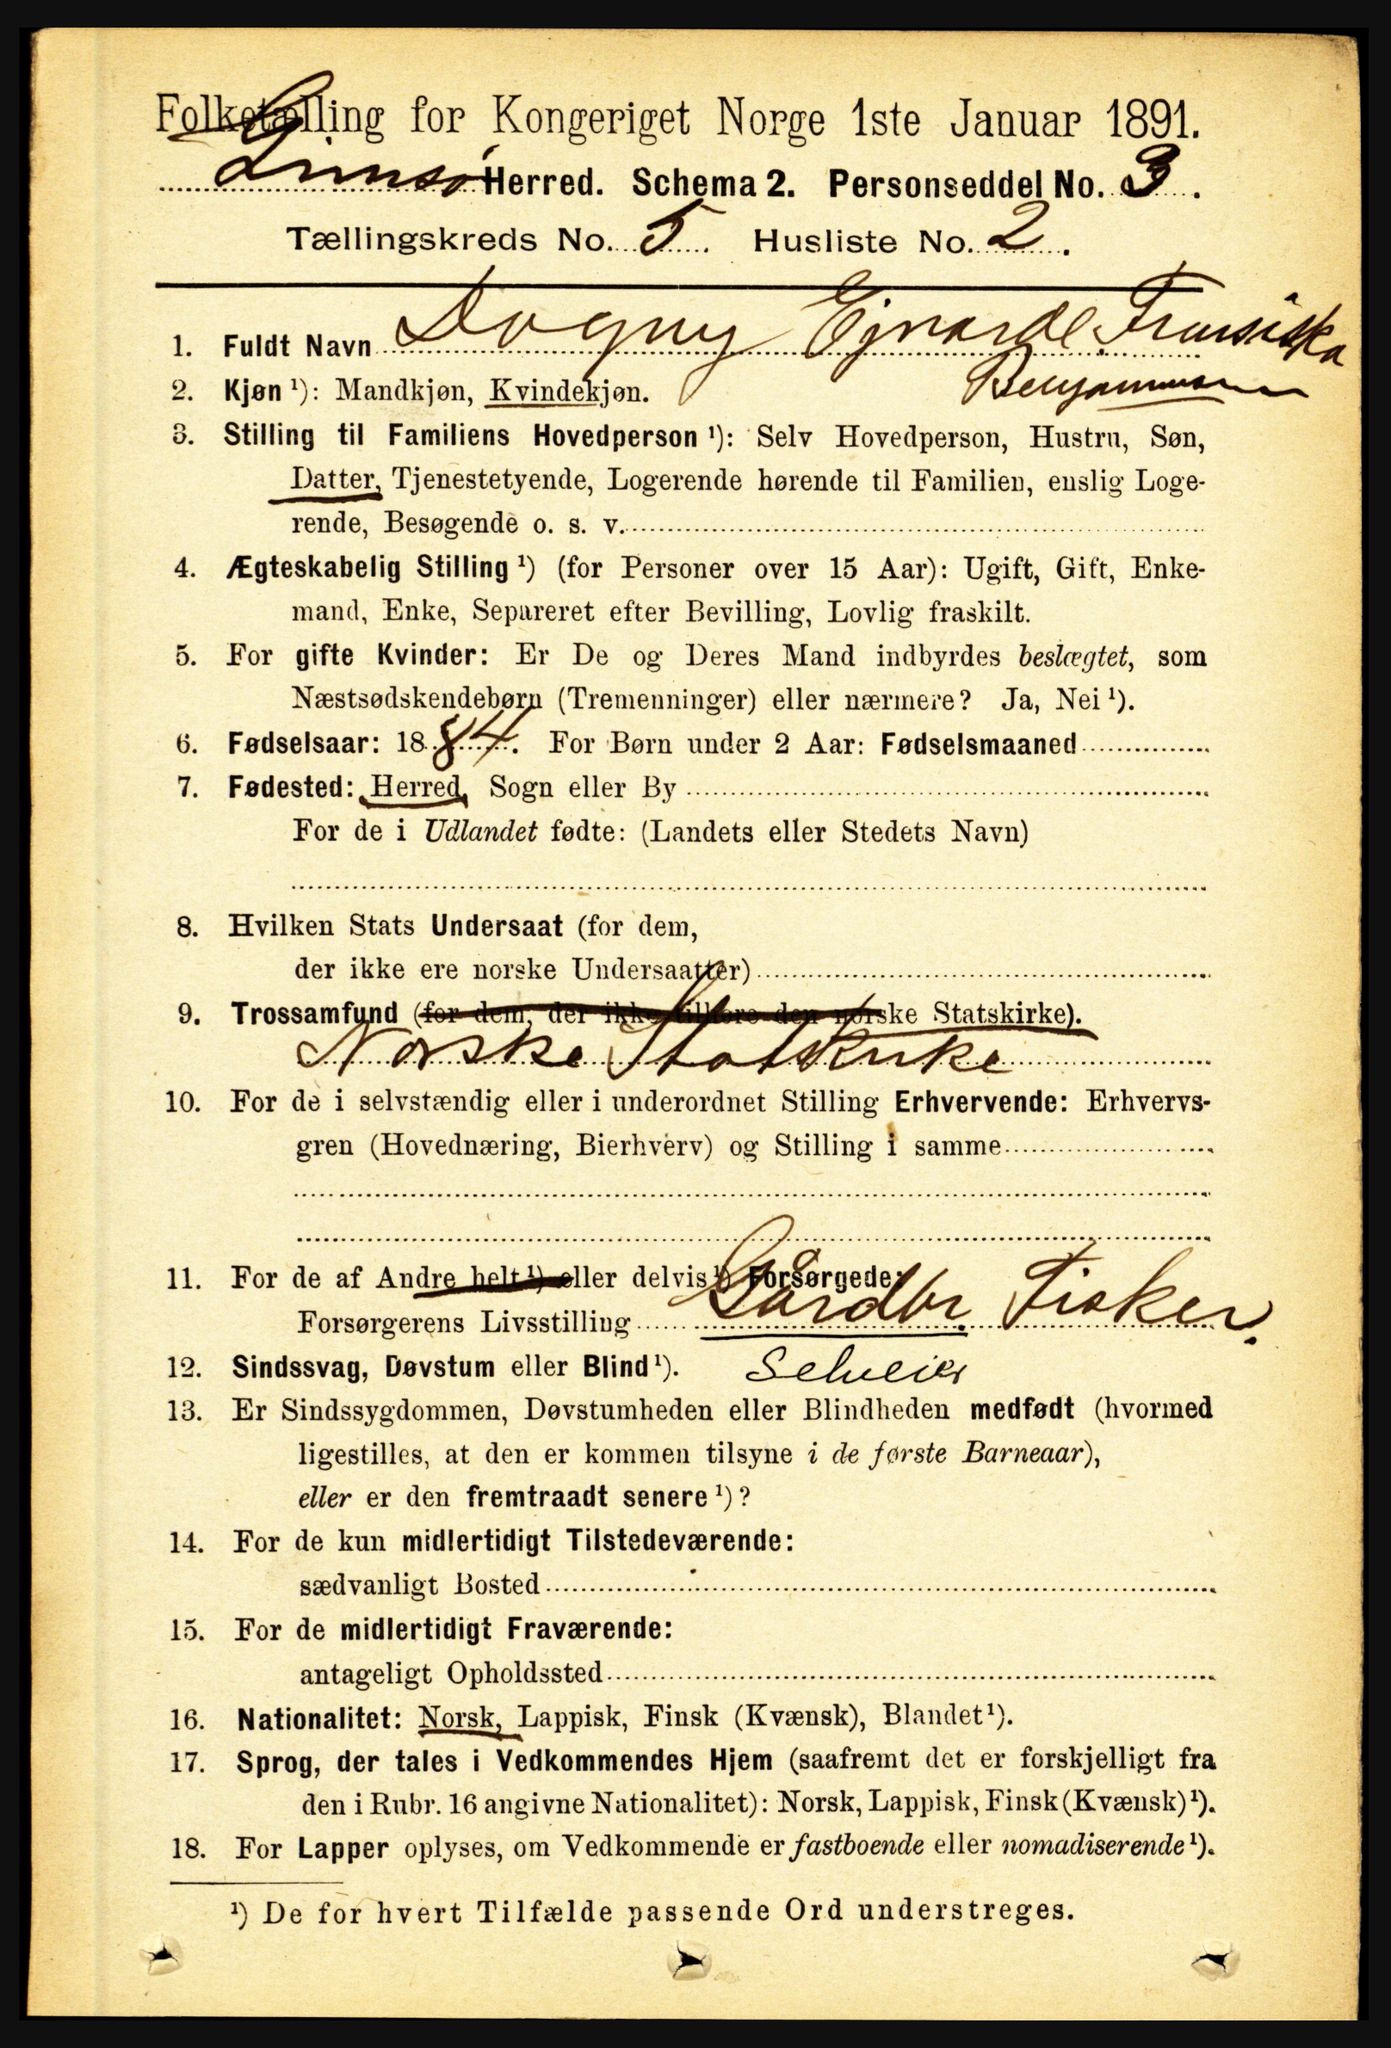 Folketælling for Kongeriget Norge 1ste Januar 1891.
Gimsø Herred. Schema 2. Personseddel No. 3.
Tællingskreds No. 5. Husliste No. 2.
1. Fuldt Navn Dagny Ejnarde Fransiska
Benjaminsen
2. Kjøn ¹): Mandkjøn, Kvindekjøn.
3. Stilling til Familiens Hovedperson ¹): Selv Hovedperson, Hustru, Søn,
Datter, Tjenestetyende, Logerende hørende til Familien, enslig Loge-
rende, Besøgende o. s. v.
4. Ægteskabelig Stilling ¹) (for Personer over 15 Aar): Ugift, Gift, Enke-
mand, Enke, Separeret efter Bevilling, Lovlig fraskilt.
5. For gifte Kvinder: Er De og Deres Mand indbyrdes beslægtet, som
Næstsødskendebørn (Tremenninger) eller nærmere? Ja, Nei ¹).
6. Fødselsaar: 1884. For Børn under 2 Aar: Fødselsmaaned
7. Fødested: Herred, Sogn eller By
For de i Udlandet fødte: (Landets eller Stedets Navn)
8. Hvilken Stats Undersaat (for dem,
der ikke ere norske Undersaatter)
9. Trossamfund (for dem, der ikke tilhøre den norske Statskirke).
Norske Statskirke
10. For de i selvstændig eller i underordnet Stilling Erhvervende: Erhvervs-
gren (Hovednæring, Bierhverv) og Stilling i samme
11. For de af Andre helt ¹) eller delvis ¹) Forsørgede:
Forsørgerens Livsstilling Gårdbr. Fisker.
12. Sindssvag, Døvstum eller Blind ¹). Selveier
13. Er Sindssygdommen, Døvstumheden eller Blindheden medfødt (hvormed
ligestilles, at den er kommen tilsyne i de første Barneaar),
eller er den fremtraadt senere ¹)?
14. For de kun midlertidigt Tilstedeværende:
sædvanligt Bosted
15. For de midlertidigt Fraværende:
antageligt Opholdssted
16. Nationalitet: Norsk, Lappisk, Finsk (Kvænsk), Blandet ¹).
17. Sprog, der tales i Vedkommendes Hjem (saafremt det er forskjelligt fra
den i Rubr. 16 angivne Nationalitet): Norsk, Lappisk, Finsk (Kvænsk) ¹).
18. For Lapper oplyses, om Vedkommende er fastboende eller nomadiserende ¹).
¹) De for hvert Tilfælde passende Ord understreges.